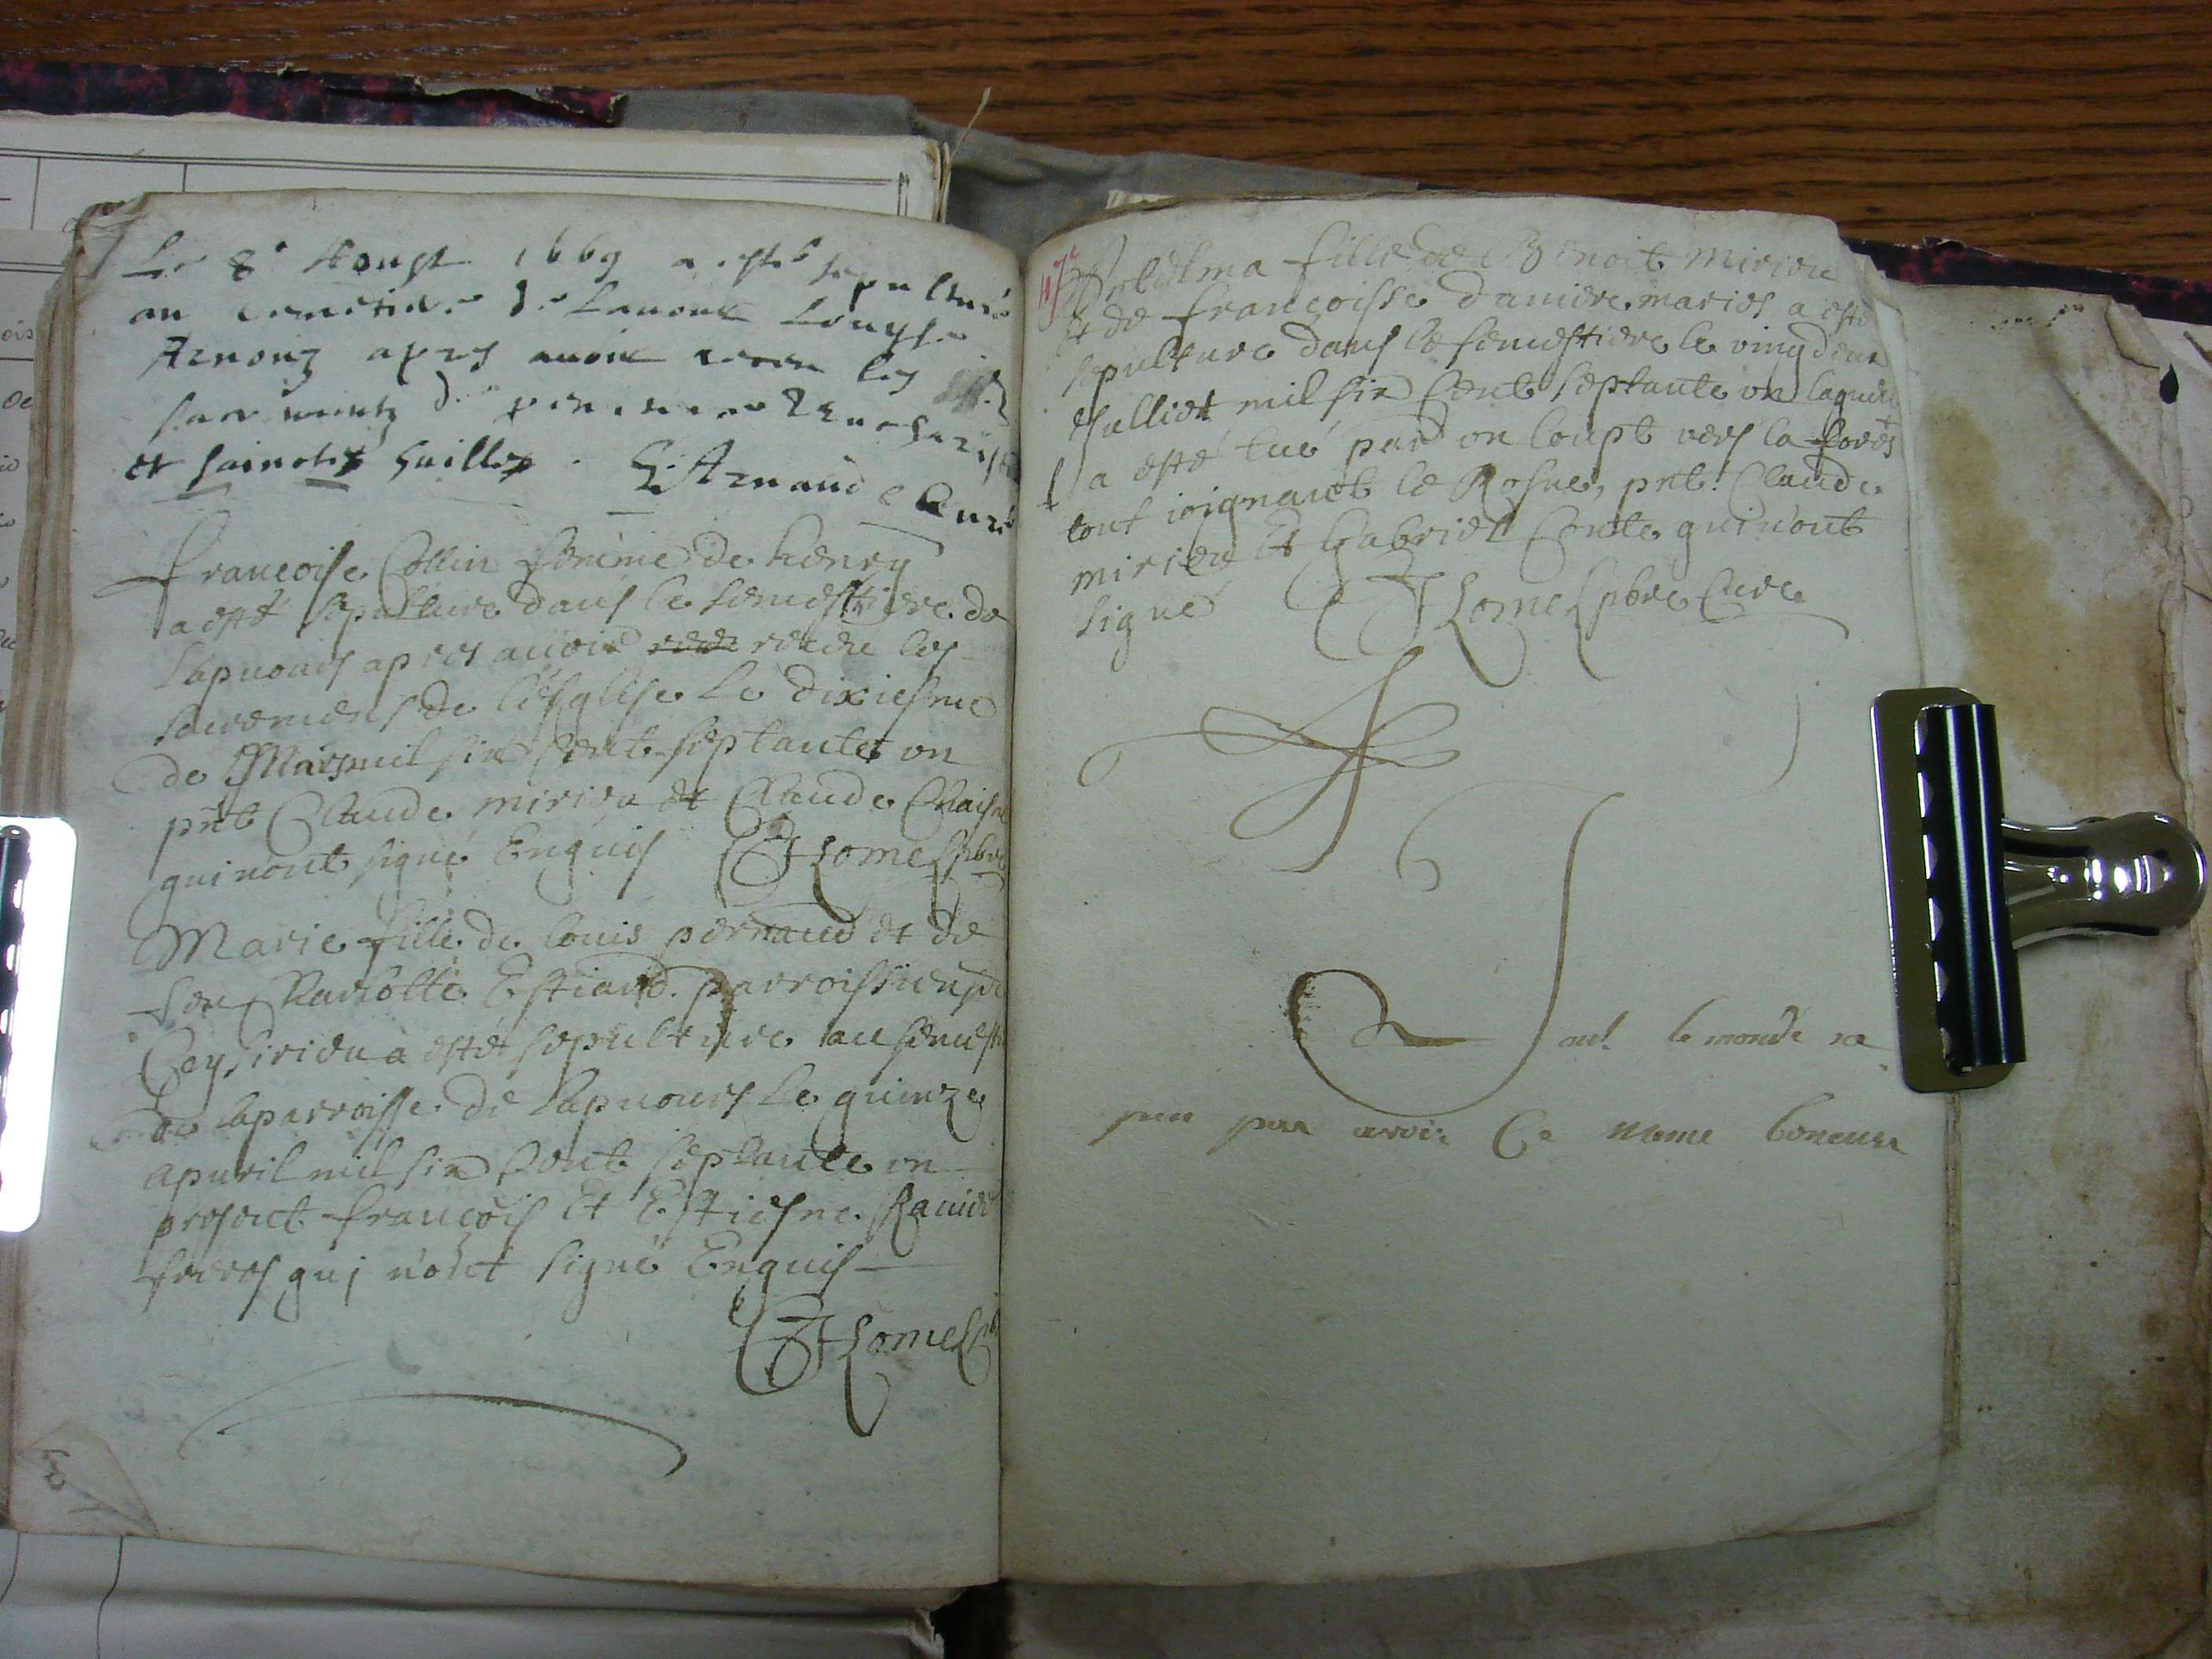 Le 8e Aougst 1669 a esté sepulturé
au cemetiere de Lanoux Louyse
Arnoux apres avoir receu les
sacrements de penitence
et sainctes huilles. E. Arnaud Curé
françoise Collin femme de henry
a esté sepulture dans le semestiere de
Lapnouis apres auoir receu les
sacremens de l'esglise le dixiesme
de Mars mil six cent septante on
pnt Claude mirieu et Claude
qui nont signé Enquis Lomel pbre
Marie fille de louis pernaud et de
Estiard parroissiens de
Ceysirieu a esté sepulture au semesti
de la parroisse de Lapnouis le quinze
apuril mil six cent septante on
present françois et Estiesne Rauier
freres qui nont signé Enquis
Lomel
fille de Benoit mirieu
et de françoisse dauiere maries a esté
sepulture dans le semestiere le vingdeux
Julliet mil six cent septante on laquelle
a esté tué par on loupt vers la forest
tout joignant le Rosne, pnt Claude
mirieu et Gabriel Conte qui nont
signé Lomel pbre Cure
tout le monde ne
peu pas avoir Ce meme boneur